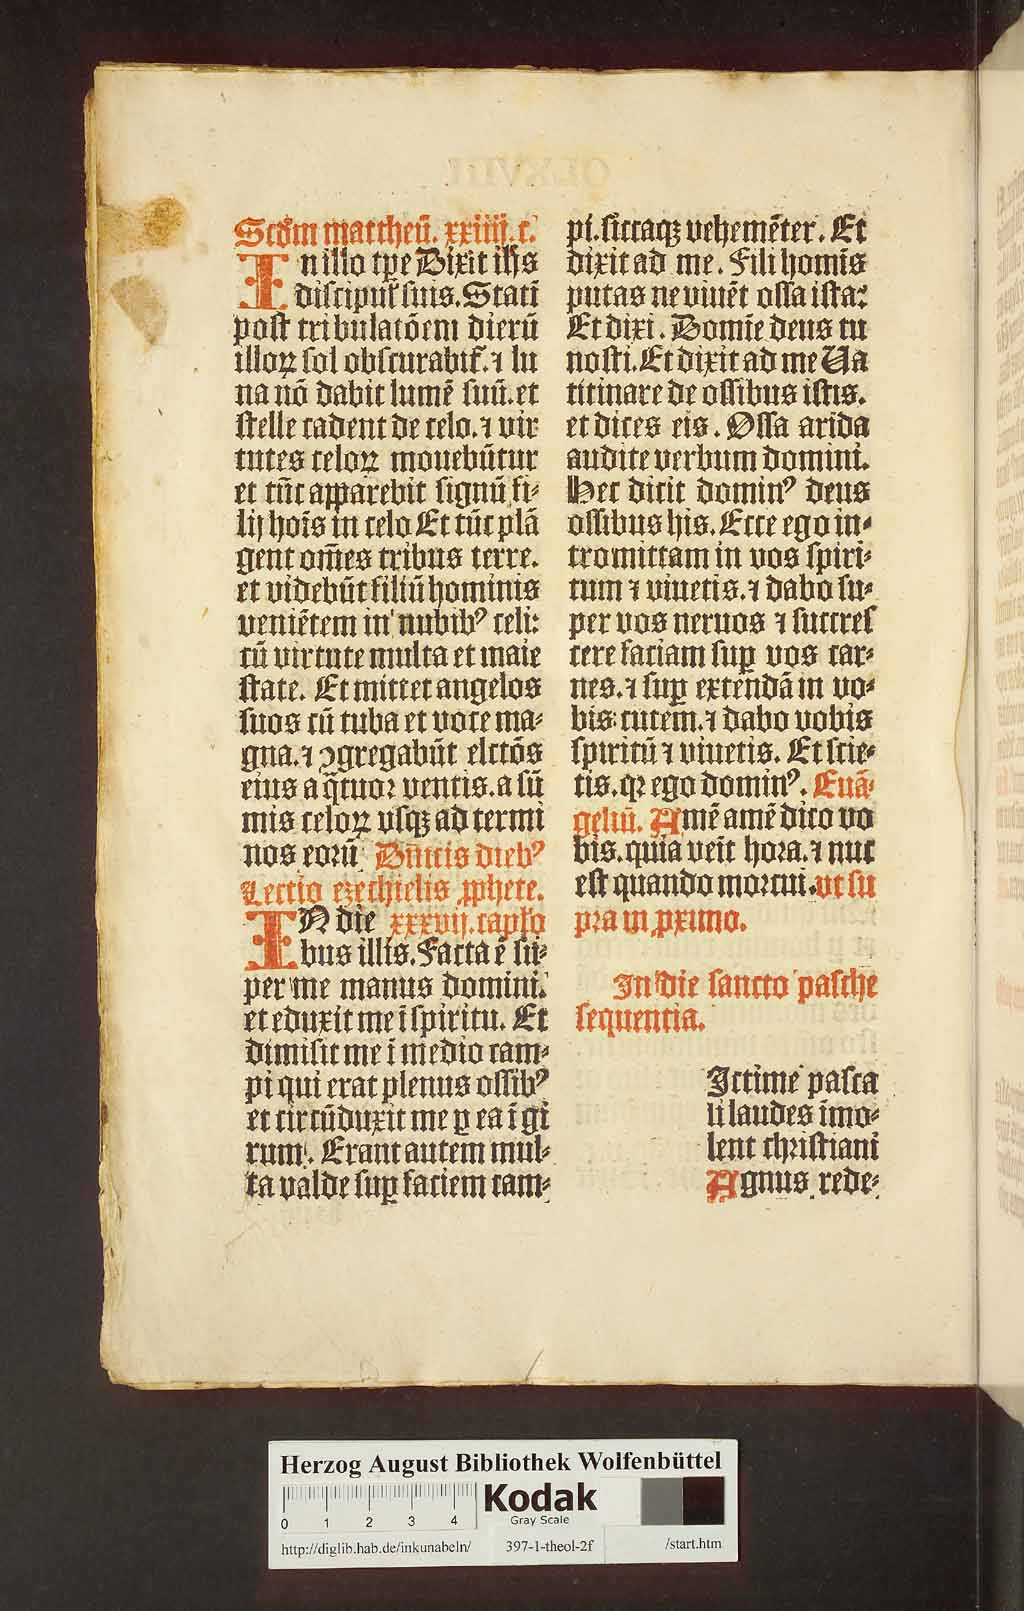 Scd'm mattheū. xxiiij. c.
In illo tꝑe Dixit ihs
discipul' suis. Statī
post tribulatōem dierū
illoꝝ sol obscurabit'. ⁊ lu
na nō dabit lumē suū. et
stelle cadent de celo. ⁊ vir
tutes celoꝝ mouebūtur
et tūc apparebit signū fi⸗
lij hoīs in celo Et tūc plā
gent om̄es tribus terre.
et videbūt filiū hominis
veniētem in nubibꝰ celi:
cū virtute multa et maie
state. Et mittet angelos
suos cū tuba et voce ma⸗
gna. ⁊ ↄgregabūt elctōs
eius a q̄tuor ventis. a sū
mis celoꝝ vsqꝫ ad termi
nos eorū Dn̄icis diebꝰ
Lectio ezechielis ꝓphete.
IN die xxxvij. caplo
bus illis. Facta ē su⸗
per me manus domini.
et eduxit me ī spiritu. Et
dimisit me ī medio cam⸗
pi qui erat plenus ossibꝰ
et circūduxit me ꝑ ea ī gi
rum. Erant autem mul⸗
ta valde suꝑ faciem cam⸗
pi. siccaqꝫ vehemēter. Et
dixit ad me. Fili homīs
putas ne viuēt ossa ista?
Et dixi. Domīe deus tu
nosti. Et dixit ad me Ua
ticinare de ossibus istis.
et dices eis. Ossa arida
audite verbum domini.
Hec dicit dominꝰ deus
ossibus his. Ecce ego in⸗
tromittam in vos spiri⸗
tum ⁊ viuetis. ⁊ dabo su⸗
per vos neruos ⁊ succres
cere faciam suꝑ vos car⸗
nes. ⁊ suꝑ extendā in vo⸗
bis: cutem. ⁊ dabo vobis
spiritū ⁊ viuetis. Et scie⸗
tis. qꝛ ego dominꝰ. Euā⸗
geliū. Amē amē dico vo
bis. quia veīt hora. ⁊ nūc
est quando mortui. vt su
pra in ꝓximo.
In die sancto pasche
sequentia.
Ictime pasca
li laudes īmo⸗
lent christiani
Agnus rede⸗
Herzog August Bibliothek Wolfenbüttel
0 1 2 3 4
Kodak
Gray Scale
http://diglib.hab.de/inkunabeln/ 397-1-theol-2f /start.htm